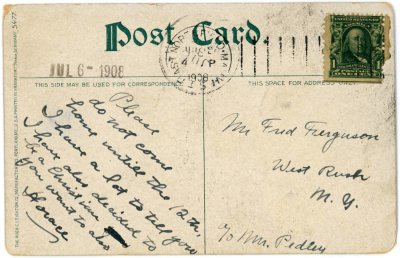 Post Card
JUL 6 - 1908
1908
THIS SIDE MAY BE USED FOR CORRESPONDENCE
THIS SPACE FOR ADDRESS ONLY
Please
do not come
home untill the 12th,
I have a lot to tell you
I have also decided to
be a Christian
you want to also
Horace
Mr Fred Ferguson
West Rush
N. Y.
℅ Mr. Pedley